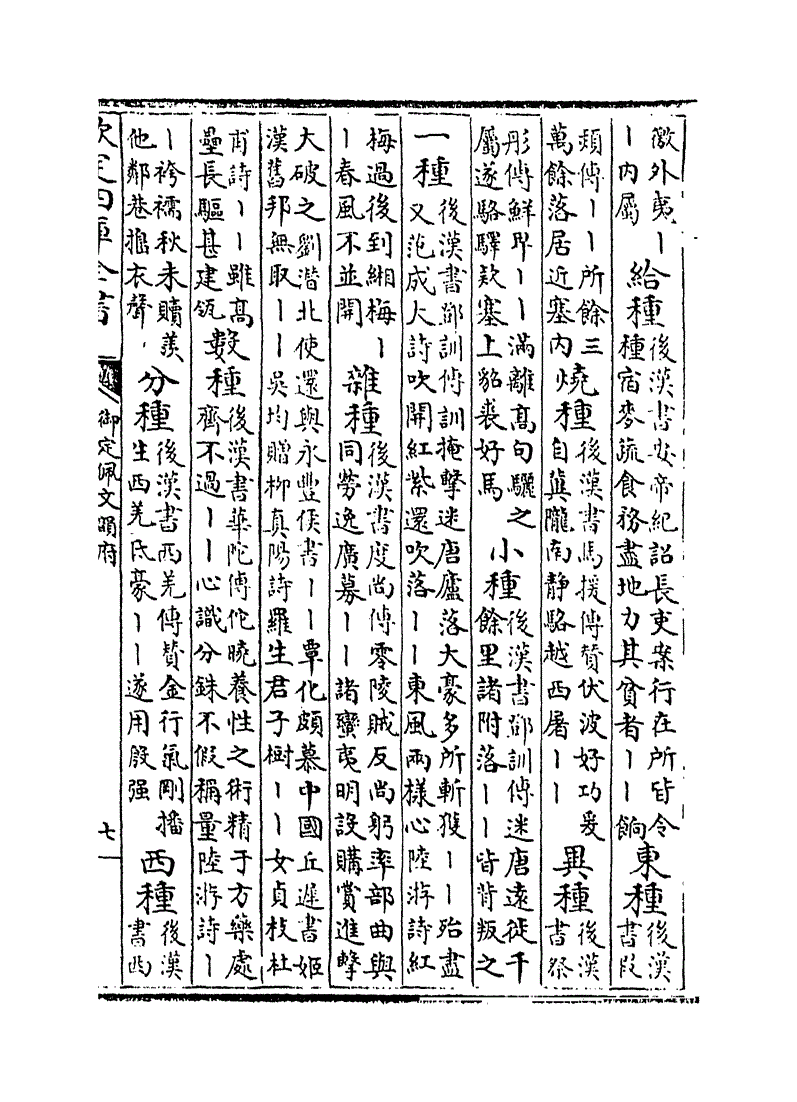 徼外夷丨
丨内屬
給種
後漢書安帝紀詔長吏案行在所皆令
種宿麥蔬食務盡地力其貧者丨丨餉
東種
後漢
書段
熲傳丨丨所餘三
萬餘落居近塞内
燒種
後漢書馬援傳贊伏波好功爰
自冀隴南静駱越西屠丨丨
異種
後漢
書祭
肜傳鮮卑丨丨滿離高句驪之
屬遂駱驛款塞上貂裘好馬
小種
後漢書鄧訓傳迷唐遠徙千
餘里諸附落丨丨皆背叛之
一種
後漢書鄧訓傳訓掩擊迷唐廬落大豪多所斬獲丨丨殆盡
又范成大詩吹開紅紫還吹落丨丨東風兩樣心陸游詩紅
梅過後到緗梅丨
丨春風不並開
雜種
後漢書度尚傳零陵賊反尚躬率部曲與
同勞逸廣募丨丨諸蠻夷明設購賞進擊
大破之劉潛北使還與永豐侯書丨丨覃化頗慕中國丘遲書姬
漢舊邦無取丨丨吳均贈柳真陽詩羅生君子樹丨丨女貞枝杜
甫詩丨丨雖高
壘長驅甚建瓴
數種
後漢書華陀傳佗曉養性之術精于方藥處
齊不過丨丨心識分銖不假稱量陸游詩丨
丨袴襦秋未贖羨
他鄰巷擣衣聲
分種
後漢書西羌傳贊金行氣剛播
生西羌氐豪丨丨遂用殷强
西種
後漢
書西
欽定四庫全書
御定佩文韻府
七